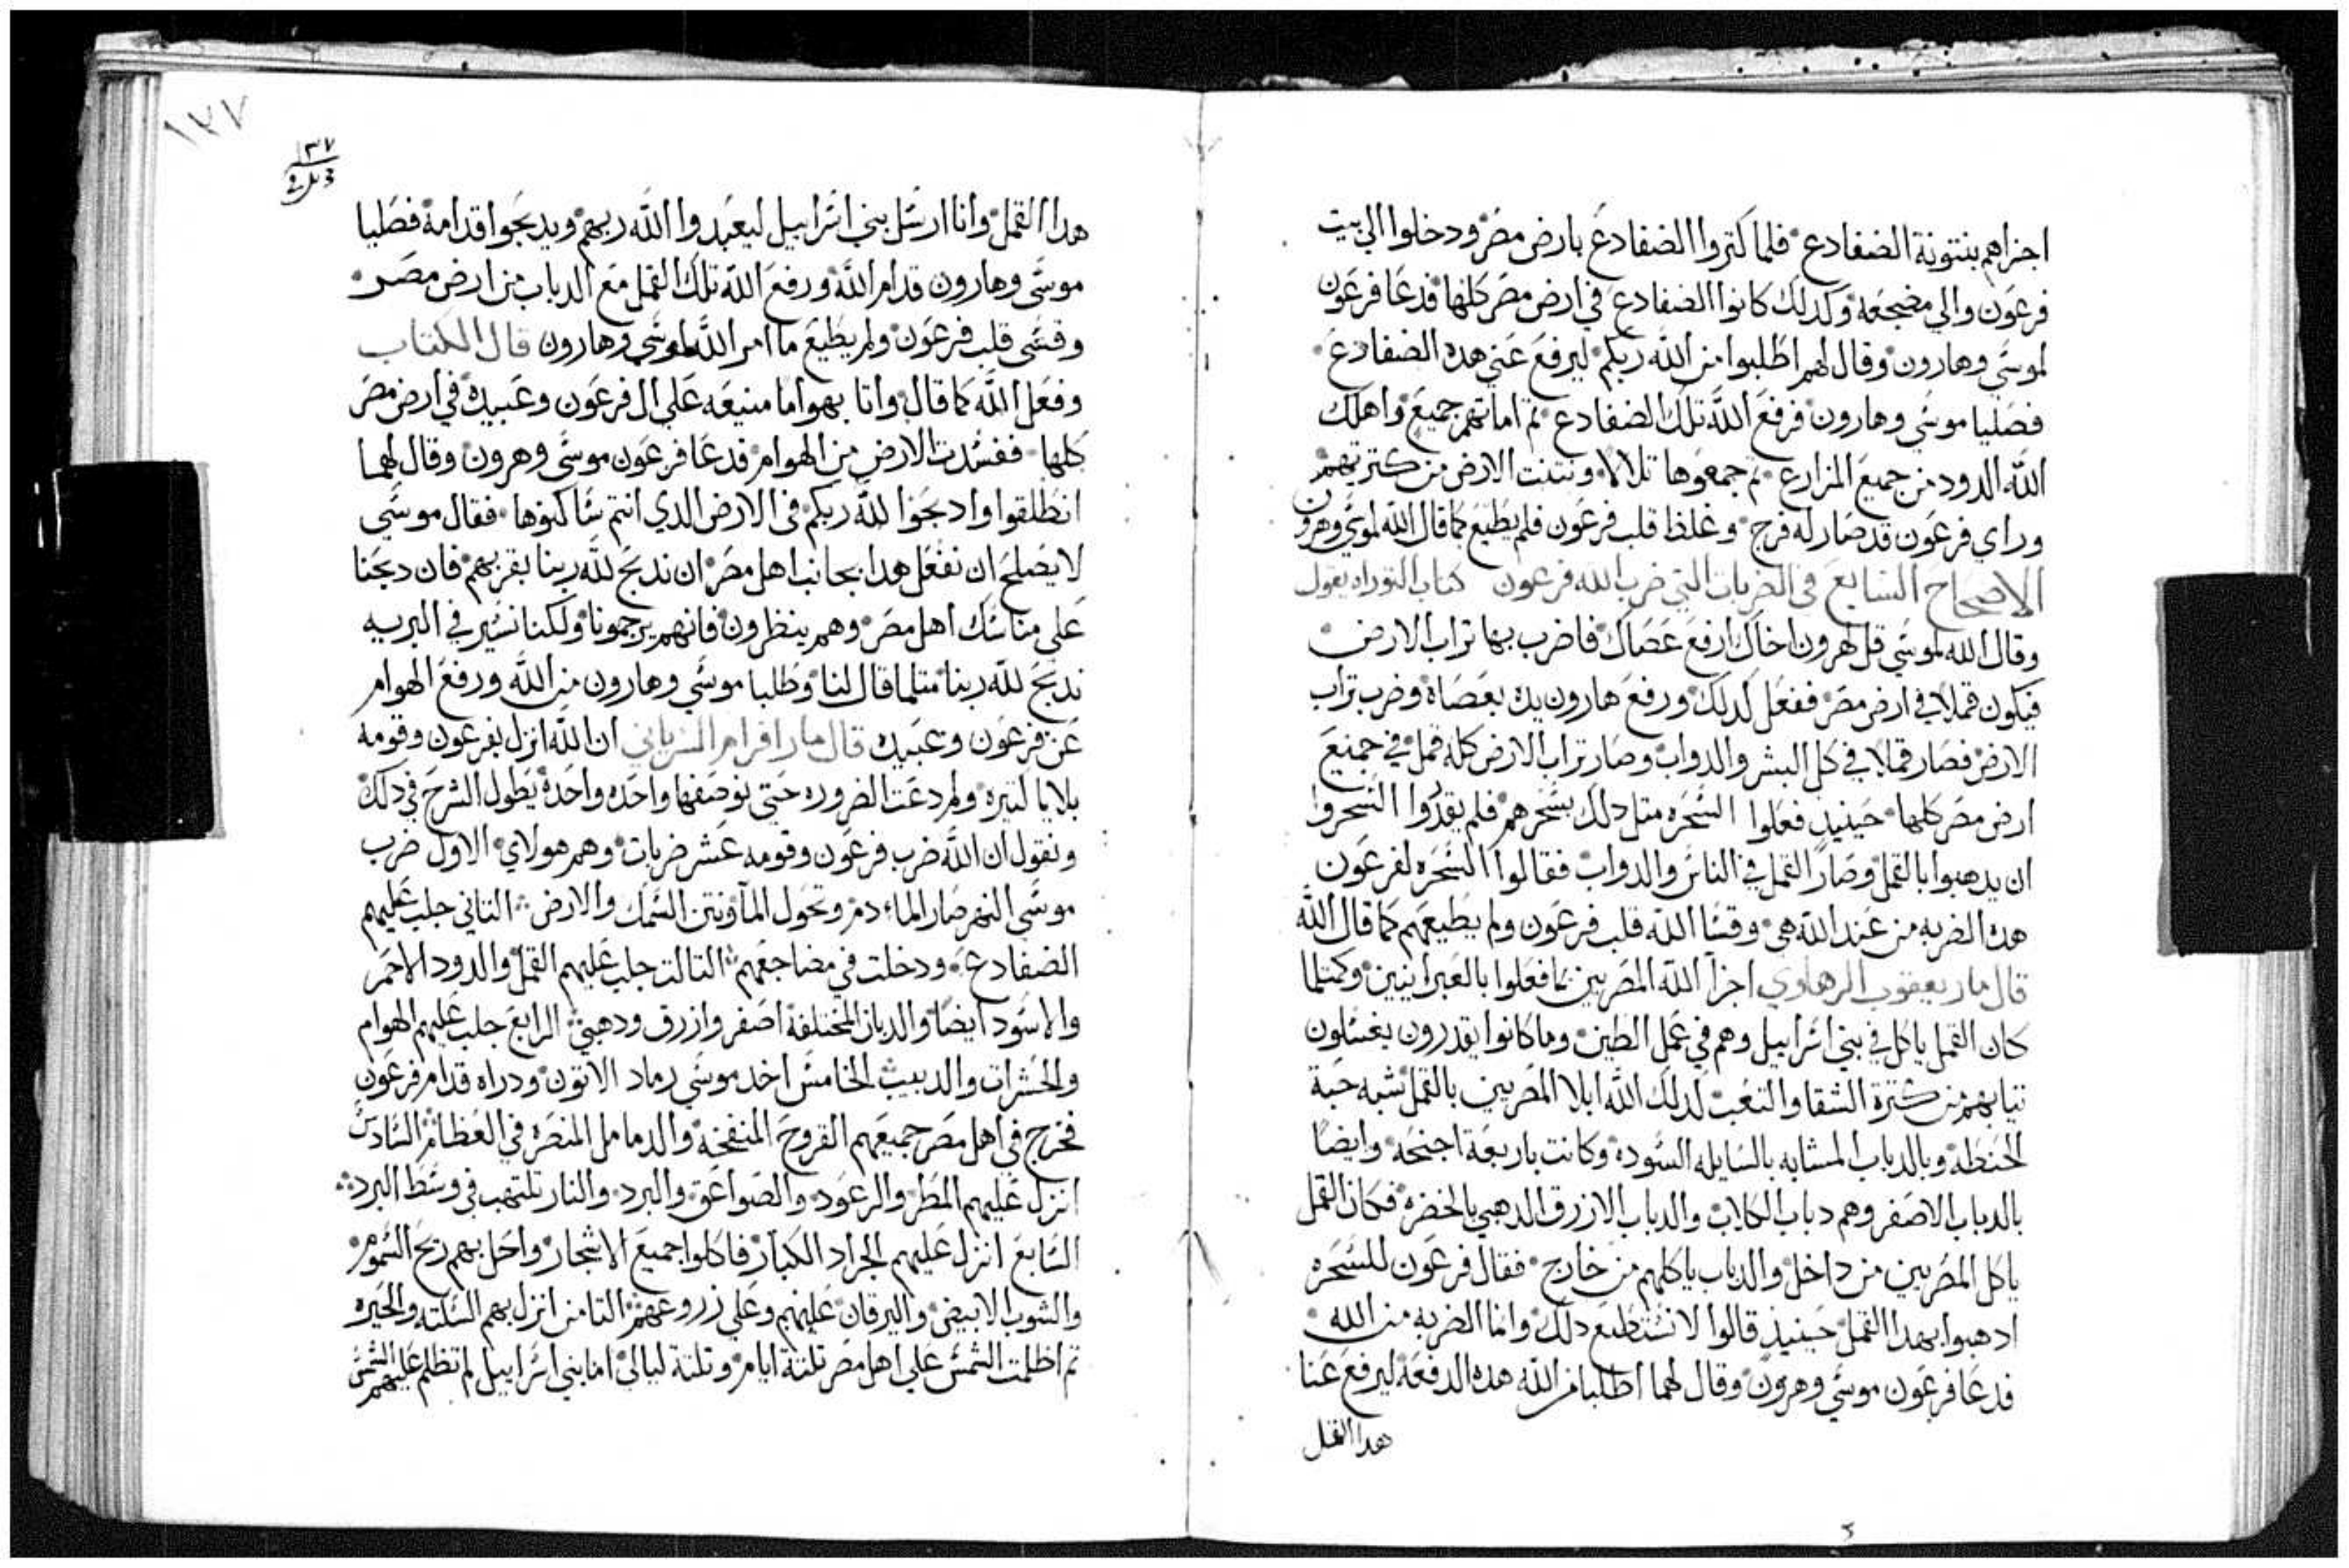 اجزاهم بنتونة الضفادع فلما كتروا الضفادع بارض مصر ودخلوا الي بيت
فرعون والي مضجعه وكدلك كانوا الضفادع في ارض مصر كلها فدعا فرعون
لموسي وهارون وقال لهم اطلبوا من الله ربكم ليرفع عني هده الضفادع
فصليا موسي وهارون فرفع الله تلك الضفادع تم اماتهم جميع واهلك
الله الدود من جميع المزارع تم جمعوها تلالا ونتنت الارض من كتريتهم
وراي فرعون قد صار له فرج وغلظ قلب فرعون فلم يطيع كما قال الله لموسي وهرون
الاصحاح السابع في الضربات التي ضرب الله فرعون كتاب التوراه يقول
وقال الله لموسي قل لهرون اخاك ارفع عصاك فاضرب بها تراب الارض
فيكون قملا في ارض مصر ففعل كدلك ورفع هارون يده بعصاة وضرب تراب
الارض فصار قملا في كل البشر والدواب وصار تراب الارض كله قمل في جميع
ارض مصر كلها حينيد فعلوا السحره متل دلك بسحرهم فلم يقدروا السحروا
ان يدهبوا بالقمل وصار القمل في الناس والدواب فقالوا السحره لفرعون
هده الضربه من عند الله هي وقسا الله قلب فرعون ولم يطيعهم كما قال الله
قال مار يعقوب الرهاوي اجزا الله المصريين بما فعلوا بالعبرانيين وكمتلما
كان القمل ياكل في بني اسراييل وهم في عمل الطين وما كانوا يقدرون يغسلون
تيابهم من كترة الشقا والتعب لدلك الله ابلا المصريين بالقمل شبه حبة
الحنطة وبالدباب المشابه بالسايله السودة وكانت باربعة اجنحة وايضا
بالدباب الاصفر وهم دباب الكلاب والدباب الازرق الدهبي بالخضره فكان القمل
ياكل المصريين من داخل والدباب ياكلهم من خارج فقال فرعون للسحره
ادهبوا بهدا القمل حينيد قالوا لا نستطيع دلك وانما الضربه من الله
فدعا فرعون موسي وهرون وقال لهما اطلبا من الله هده الدفعة ليرفع عنا
هدا القمل
١٣٧
٣٧
هدا القمل وانا ارسل بني اسراييل ليعبدوا الله ربهم ويدبحوا قدامة فصليا
موسي وهارون قدام الله ورفع الله تلك القمل مع الدباب من ارض مصر
وقسي قلب فرعون ولم يطيع ما امر الله لموسي وهارون قال الكتاب
وفعل الله كما قال واتا بهواما منيعه علي ال فرعون وعبيده في ارض مصر
كلها ففسدت الارض من الهوام فدعا فرعون موسي وهرون وقال لهما
انطلقوا وادبحوا لله ربكم في الارض الدي انتم ساكنوها فقال موسي
لا يصلح ان نفعل هدا بجانب اهل مصر ان ندبح لله ربنا بقربهم فان دبحنا
علي مناسك اهل مصر وهم ينظرون فانهم يرجمونا ولكنا نسير في البريه
ندبح لله ربنا متلما قال لنا وطلبا موسي وهارون من الله ورفع الهوام
عن فرعون وعبيده قال مار افرام السرياني ان الله انزل بفرعون وقومه
بلايا كتيرة ولم دعت الضروره حتي نوصفها واحده واحدة يطول الشرح في دلك
ونقول ان الله ضرب فرعون وقومه عشر ضربات وهم هولاي الاول ضرب
موسي النهر صار الماء دم وتحول المآ ونتن السمك والارض التاني جلب عليهم
الضفادع ودخلت في مضاجعهم التالت جلب عليهم القمل والدود الاحمر
والاسود ايضا والدبان المختلفة اصفر وازرق ودهبي الرابع جلب عليهم الهوام
والحشرات والدبيب الخامس اخد موسي رماد الاتون ودراه قدام فرعون
فخرج في اهل مصر جميعهم القروح المنفخة والدمامل المنضرة في العظام السادس
انزل عليهم المطر والرعود والصواعق والبرد والنار تلتهب في وسط البرد
السابع انزل عليهم الجراد الكبار فاكلوا جميع الاشجار واحل بهم ريح السموم
والشوب الابيض واليرقان عليهم وعلي زروعهم التامن انزل بهم السكته والحيره
تم اظلمت الشمس علي اهل مصر تلتة ايام وتلتة ليالي اما بني اسراييل لم تظلم عليهم الشمس